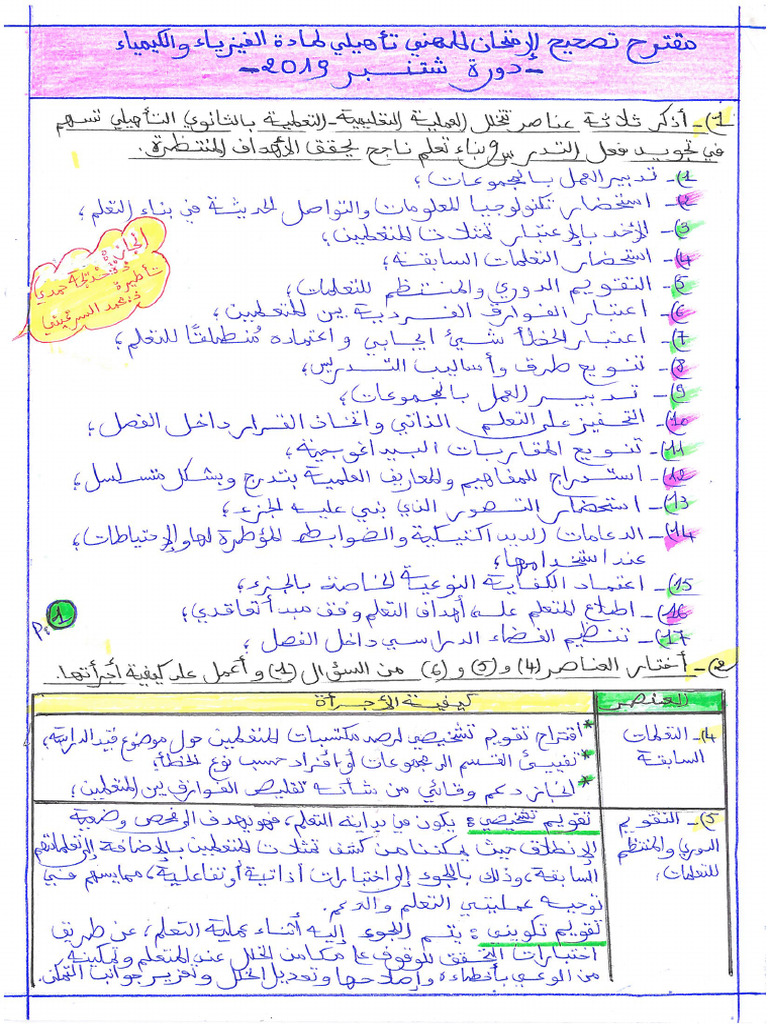 مقترح تصحيح الإمتحان المهني تأهيلي لمادة الفيزياء والكيمياء
-دورة شتنبر 2019-
1)- أذكر ثلاثة عناصر تخلل العملية التعليمية-التعلمية بالثانوي التأهيلي تسهم
في تجويد فعل التدريس وبناء تعلم ناجح يحقق الأهداف المنتظرة.
1)- تدبير العمل بالمجموعات؛
2)- استحضار تكنولوجيا المعلومات والتواصل الحديثة في بناء التعلم؛
3)- الأخد بالإعتبار تمثلات المتعلمين؛
4)- استحضار التعلمات السابقة؛
5)- التقويم الدوري والمنتظم للتعلمات؛
6)- اعتبار الفوارق الفردية بين المتعلمين؛
7)- اعتبار الخطأ شيئ ايجابي و اعتماده مُنطلقًا للتعلم؛
8)- تنويع طرق وأساليب التدريس؛
9)- تدبير العمل بالمجموعات؛
10)- التحفيز على التعلم الذاتي واتخاذ القرار داخل الفصل؛
11)- تنويع المقاربات البيداغوجية؛
12)- استدراج المفاهيم والمعارف العلمية بتدرج وبشكل متسلسل؛
13)- استحضار التصور الذي بني عليه الجزء؛
14)- الدعامات الديداكتيكية والضوابط المؤطرة لها والإحتياطات
عند استخدامها؛
15)- اعتماد الكفاية النوعية الخاصة بالجزء؛
16)- اطلاع المتعلم على أهداف التعلم وفق مبدأ تعاقدي؛
17)- تنظيم الفضاء الدراسي داخل الفصل؛
P: 1
إنجاز
تأطير
2)- أختار العناصر (4) و (5) و (6) من السؤال (1) و أعمل على كيفية أجرأتها.
العنصر
كيفية الأجرأة
4)- التعلمات
السابقة
* اقتراح تقويم تشخيصي لرصد مكتسبات المتعلمين حول موضوع قيد الدراسة؛
* تفييئ القسم الى مجموعات أو أفراد حسب نوع الخطأ؛
* انجاز دعم وقائي من شأنه تقليص الفوارق بين المتعلمين؛
5)- التقويم
الدوري والمنتظم
للتعلمات؛
تقويم تشخيصي: يكون في بداية التعلم، فهو يهدف الى فحص وضعية
الإنطلاق حيث يمكننا من كشف تمثلات المتعلمين بالإضافة إلى تعلماتهم
السابقة، وذلك باللجوء إلى اختبارات أداتية أو تفاعلية، مما يسهم في
توجيه عمليتي التعلم والدعم.
تقويم تكويني: يتم اللجوء إليه أثناء عملية التعلم، عن طريق
اختبارات التحقق للوقوف على مكامن الخلل عند المتعلم وتمكينه
من الوعي بأخطاءه وإصلاحها وتعديل الخلل وتعزيز جوانب التمكن.